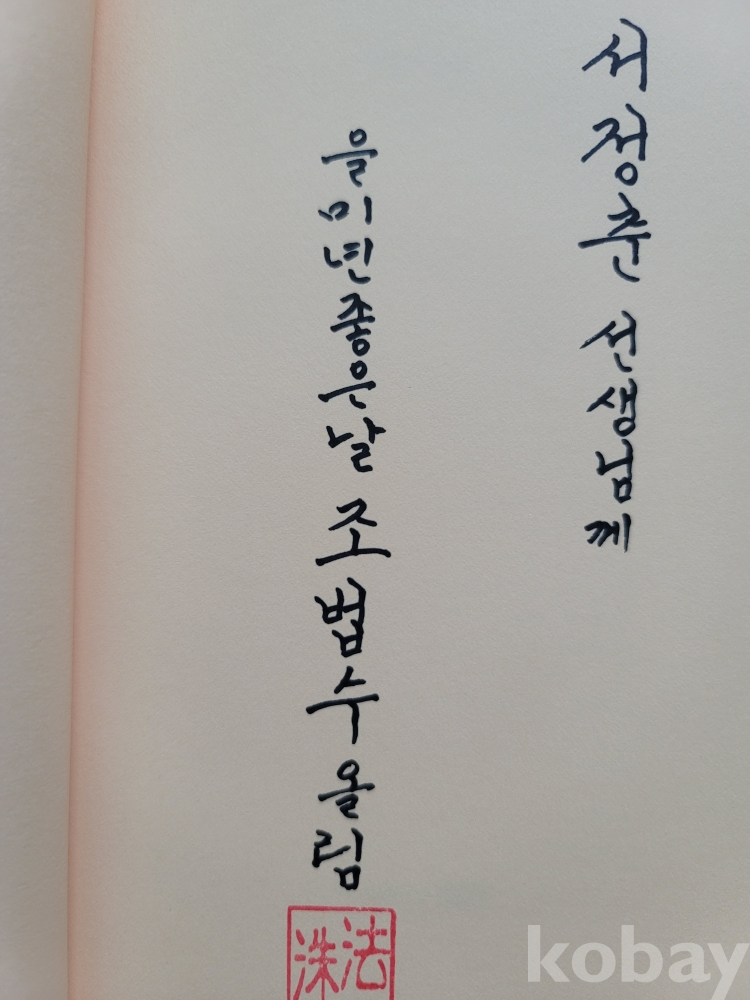 서정춘 선생님께
을미년 좋은날 조법수 올림
法洙
kobay